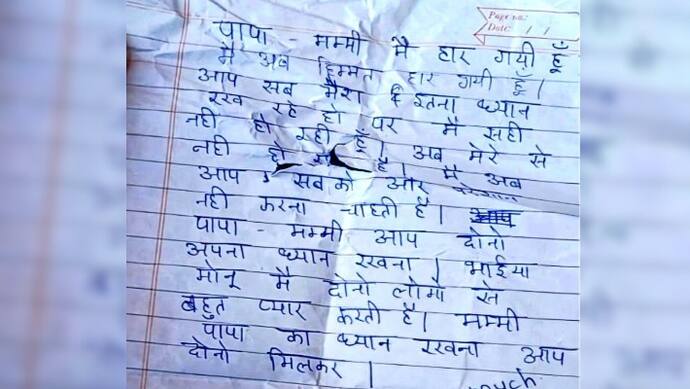 Page No:
Date: / /
पापा - मम्मी मै हार गयी हूँ
मै अब हिम्मत हार गयी हूँ।
आप सब मेरा इतना ध्यान
रख रहे हो पर मै सही
नही हो रही हूँ। अब मेरे से
नही हो है। मै अब
आप सबको और
नही करना चाहती है।
पापा - मम्मी आप दोनो
अपना ध्यान रखना। भाईया
मोनू मै दोनो लोगो से
बहुत प्यार करती है। मम्मी
पापा का ध्यान रखना आप
दोनो मिलकर।